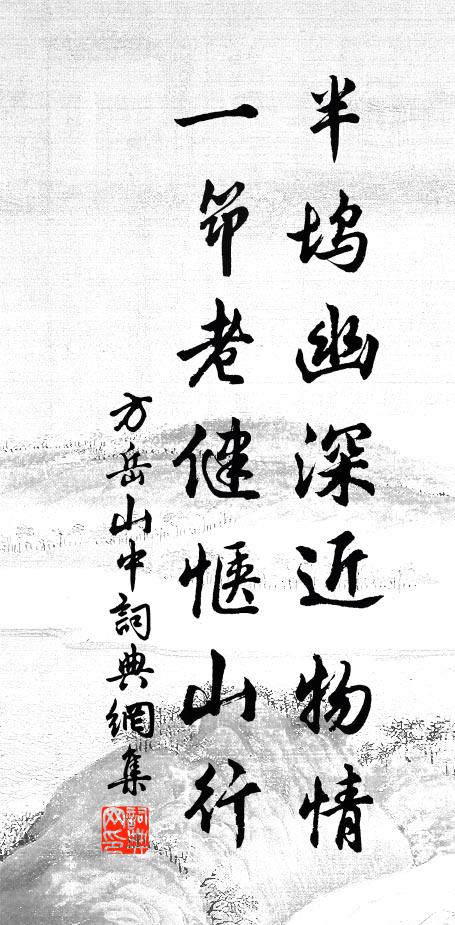 半坞幽深近物情
一筇老健惬山行
方岳山中詞典網集